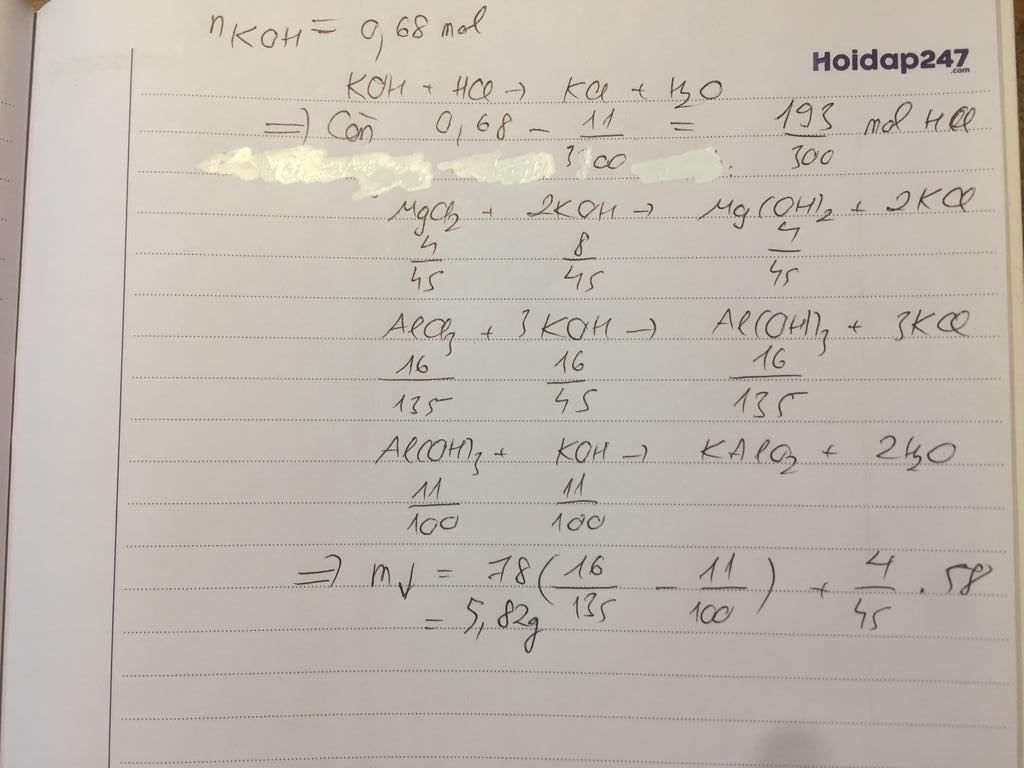 nKOH = 0,68 mol
Hoidap247
.com
KOH + HCl → KCl + H2O
=> Còn 0,68 - 11/300 = 193/300 mol HCl
MgCl2 + 2KOH → Mg(OH)2 + 2KCl
4/45 8/45 4/45
AlCl3 + 3KOH → Al(OH)3 + 3KCl
16/135 16/45 16/135
Al(OH)3 + KOH → KAlO2 + 2H2O
11/100 11/100
=> m↓ = 78(16/135 - 11/100) + 4/45 . 58
= 5,82g